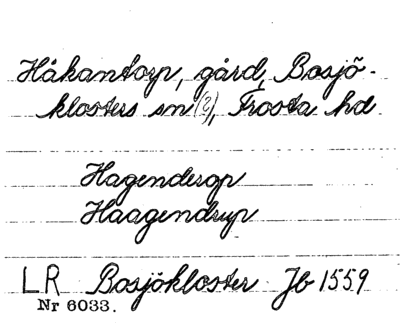 Håkantorp, gård, Bosjö-
klosters sn (?), Frosta hd
Hagenderop
Haagendrup
LR Bosjökloster Jb 1559
Nr 6033.